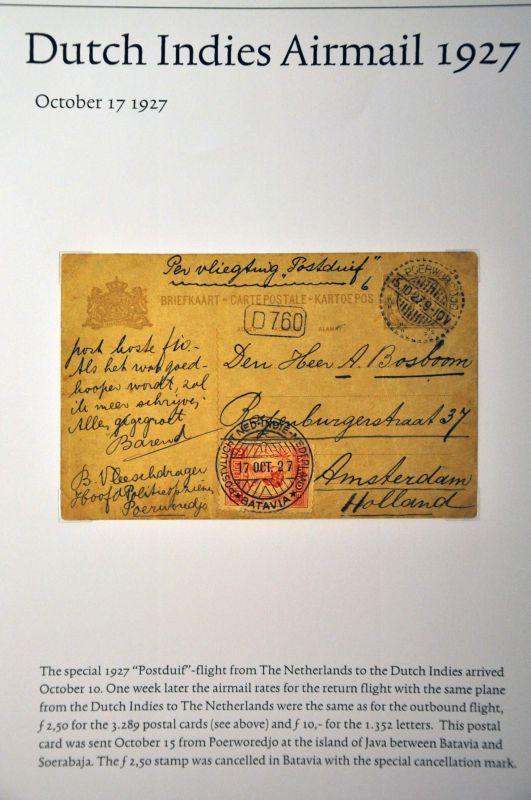 Dutch Indies Airmail 1927
October 17 1927
Per vliegtuig „Postduif"
6
BRIEFKAART - CARTE POSTALE - KARTOE POS
D 760
POERWOREDJO
15.10.27.9-10V
post koste f10.-
Als het wat goed-
kooper wordt, zal
ik meer schrijven
Alles gegroet
Barend
B. Vleeschdrager
Hoofd Politieopziener
Poerworedjo
Den Heer A. Bosboom
Rodenburgerstraat 37
Amsterdam
Holland
POSTVLUCHT NED-INDIE-NEDERLAND
17 OCT. 27
BATAVIA
The special 1927 "Postduif"-flight from The Netherlands to the Dutch Indies arrived
October 10. One week later the airmail rates for the return flight with the same plane
from the Dutch Indies to The Netherlands were the same as for the outbound flight,
ƒ 2,50 for the 3.289 postal cards (see above) and ƒ 10,- for the 1.352 letters. This postal
card was sent October 15 from Poerworedjo at the island of Java between Batavia and
Soerabaja. The ƒ 2,50 stamp was cancelled in Batavia with the special cancellation mark.